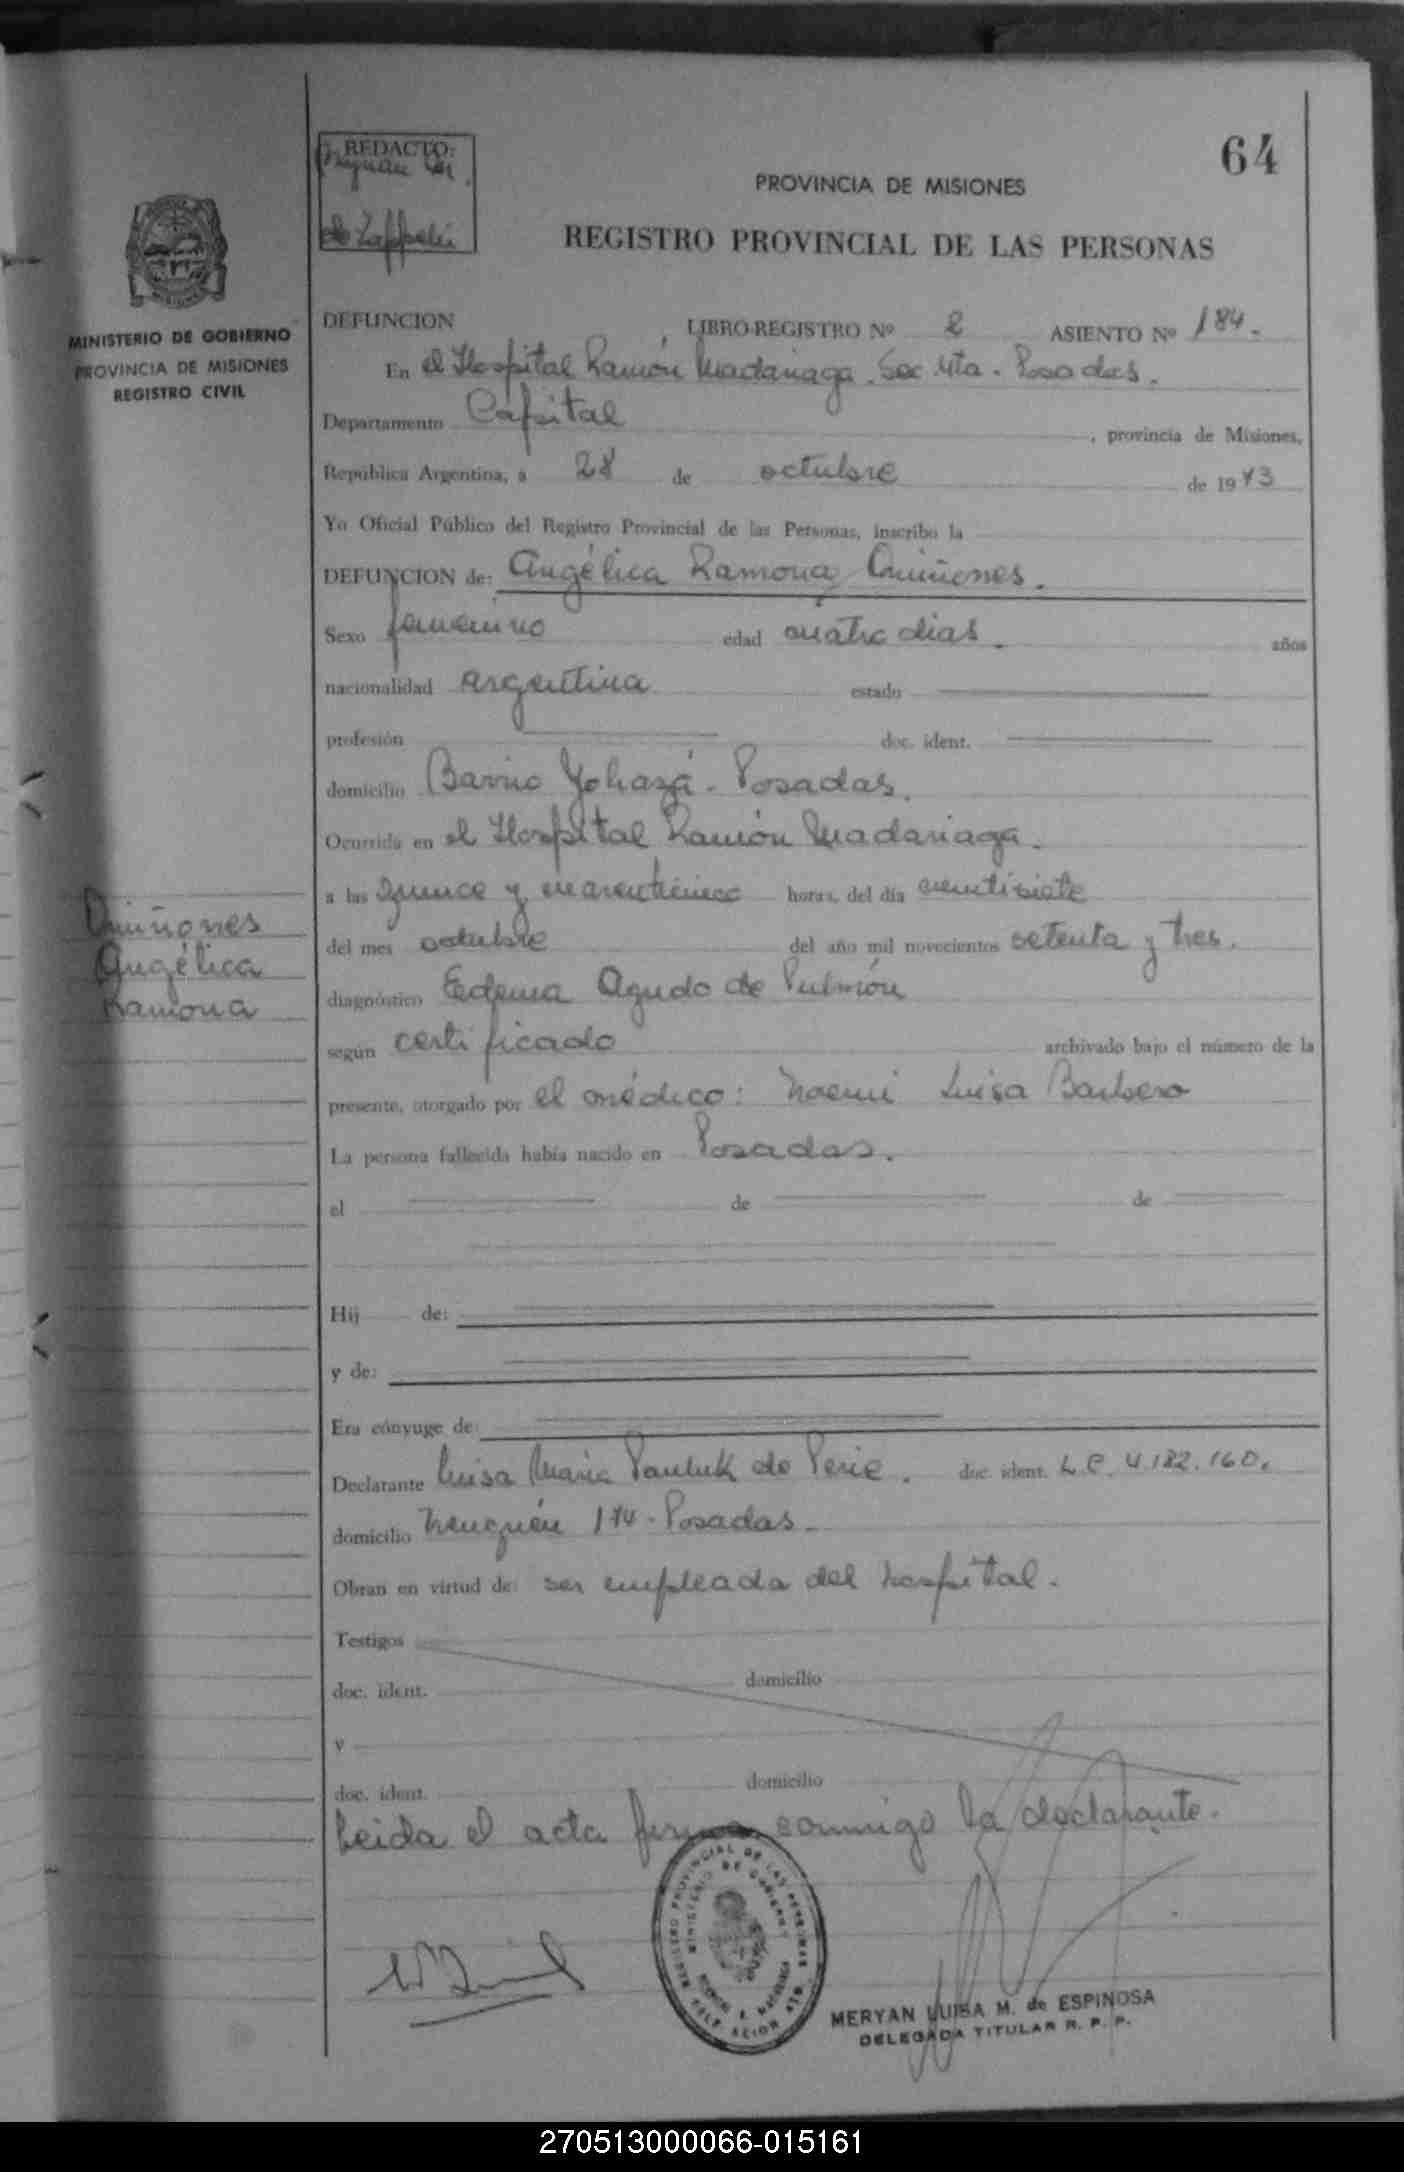 64
REDACTO:
PROVINCIA DE MISIONES
REGISTRO PROVINCIAL DE LAS PERSONAS
MINISTERIO DE GOBIERNO
PROVINCIA DE MISIONES
REGISTRO CIVIL
DEFUNCION LIBRO-REGISTRO Nº 2 ASIENTO Nº 184.
En el Hospital Ramón Madariaga. Sec. 4ta. Posadas.
Departamento Capital, provincia de Misiones,
República Argentina, a 28 de octubre de 1973
Yo Oficial Público del Registro Provincial de las Personas, inscribo la
DEFUNCION de: Angélica Ramona Quiñones.
Sexo femenino edad cuatro dias. años
nacionalidad argentina estado
profesión doc. ident.
domicilio Barrio Yohasá - Posadas.
Ocurrida en el Hospital Ramón Madariaga.
a las quince y cuarenticinco horas, del día veintisiete
del mes octubre del año mil novecientos setenta y tres.
diagnóstico Edema Agudo de Pulmón
según certificado archivado bajo el número de la
presente, otorgado por el médico: Noemi Luisa Barbero
La persona fallecida había nacido en Posadas.
el de de
Quiñones
Angélica
Ramona
Hij de:
y de:
Era cónyuge de:
Declarante Luisa Maria Pauluk de Perie. doc. ident. L.C. 4.182.160.
domicilio Neuquén 174 - Posadas.
Obran en virtud de: ser empleada del hospital.
Testigos
doc. ident. domicilio
y
doc. ident. domicilio
Leida el acta firma conmigo la declarante.
MERYAN LUISA M. de ESPINOSA
DELEGADA TITULAR R. P. P.
270513000066-015161